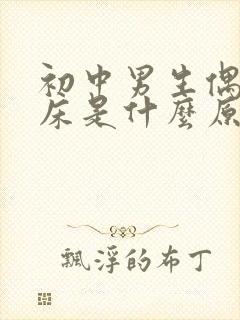 初中男生偶
床是什麼原
飄浮的布丁